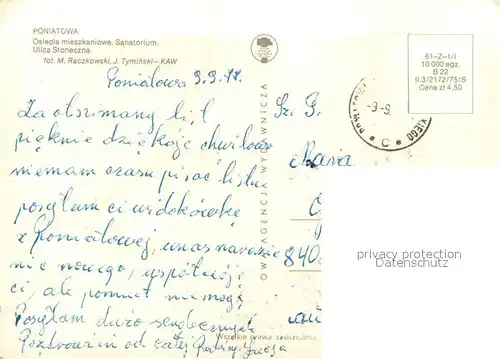 PONIATOWA
Osiedle mieszkaniowe. Sanatorium.
Ulica Słoneczna
fot. M. Raczkowski, J. Tymiński — KAW
61-Z-1/I
10 000 egz.
B 22
II.3/2172/75/S
Cena zł 4,50
Poniatowa 9.9.77.
Za otrzymany list
pięknie dziękuję chwilowo
niemam czasu pisać listu
posyłam ci widokówkę
z Poniatowej, u nas narazie
nic nowego, współczuję
ci, ale pomóc niemogę
Posyłam dużo serdecznych
Pozdrowień od całej
Sz. P.
840
OWA AGENCJA WYDAWNICZA
Wszelkie prawa zastrzeżone
privacy protection
Datenschutz